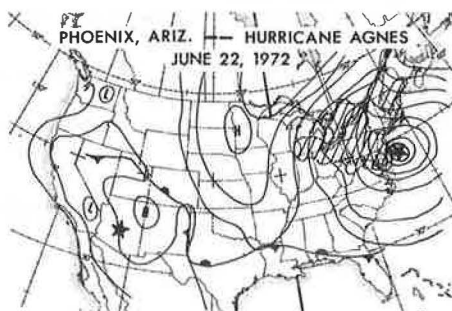 PHOENIX, ARIZ. — HURRICANE AGNES
JUNE 22, 1972
L
H
L